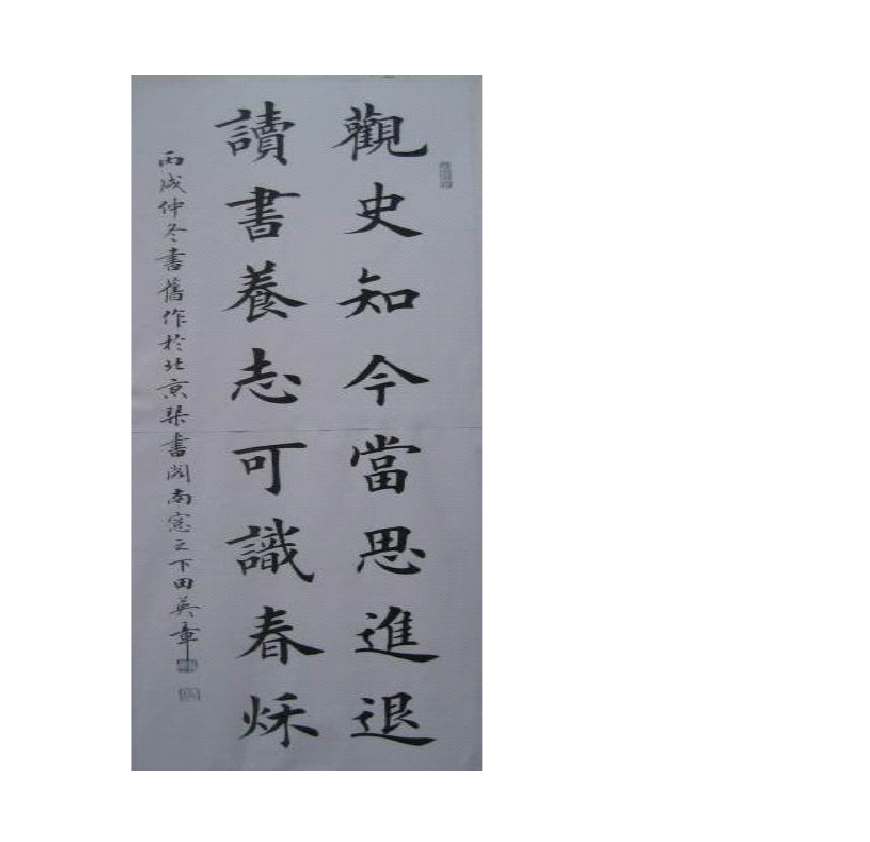 觀史知今當思進退
讀書養志可識春秌
丙戌仲冬書舊作於北京琹書閣南窓之下田英章